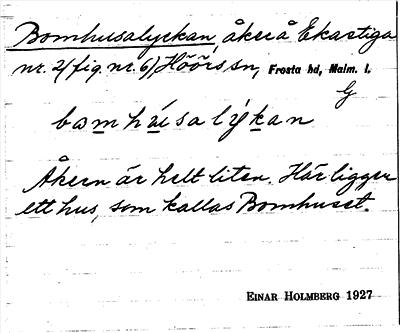 Bomhusalyckan, åker å Ekastiga
nr. 2 (fig nr. 6) Höörs sn, Frosta hd, Malm. l.
G
bωmhúsalýkan
Åkern är helt liten. Här ligger
ett hus, som kallas Bomhuset.
EINAR HOLMBERG 1927